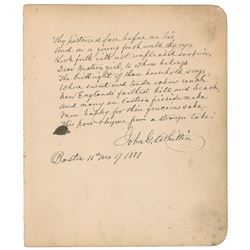 Thy pictured face before me lies
And on a young fresh world thy eyes
Look forth with not unpleased surprise,
Dear Western girl, to whom belongs
The birthright of than household songs
Whose sweet and tender echoes reach
New England's farthest hill and beach,
And many an Eastern fireside make
More happy for their precious sake
This poor rhyme from a stranger take!
John G. Whittier
Boston 11th Mo 17 1881